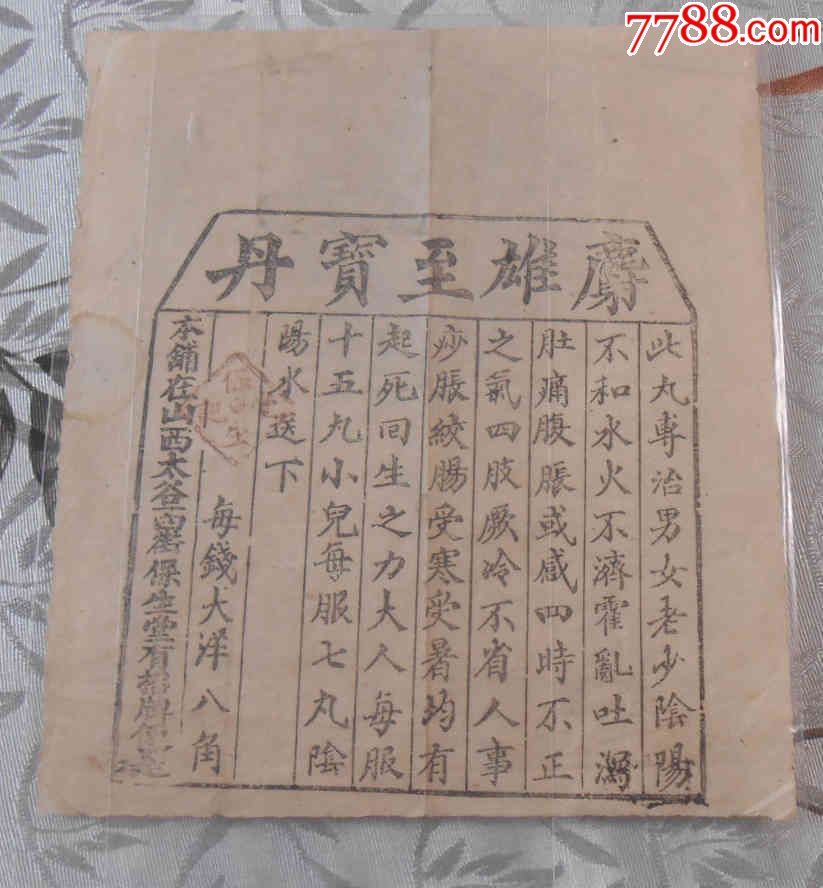 7788.com
麝雄至寶丹
此丸專治男女老少陰陽
不和水火不濟霍亂吐瀉
肚痛腹脹或感四時不正
之氣四肢厥冷不省人事
痧脹絞腸受寒受暑均有
起死回生之力大人每服
十五丸小兒每服七丸陰
陽水送下
每錢大洋八角
本舖在山西太谷
保生堂有招牌